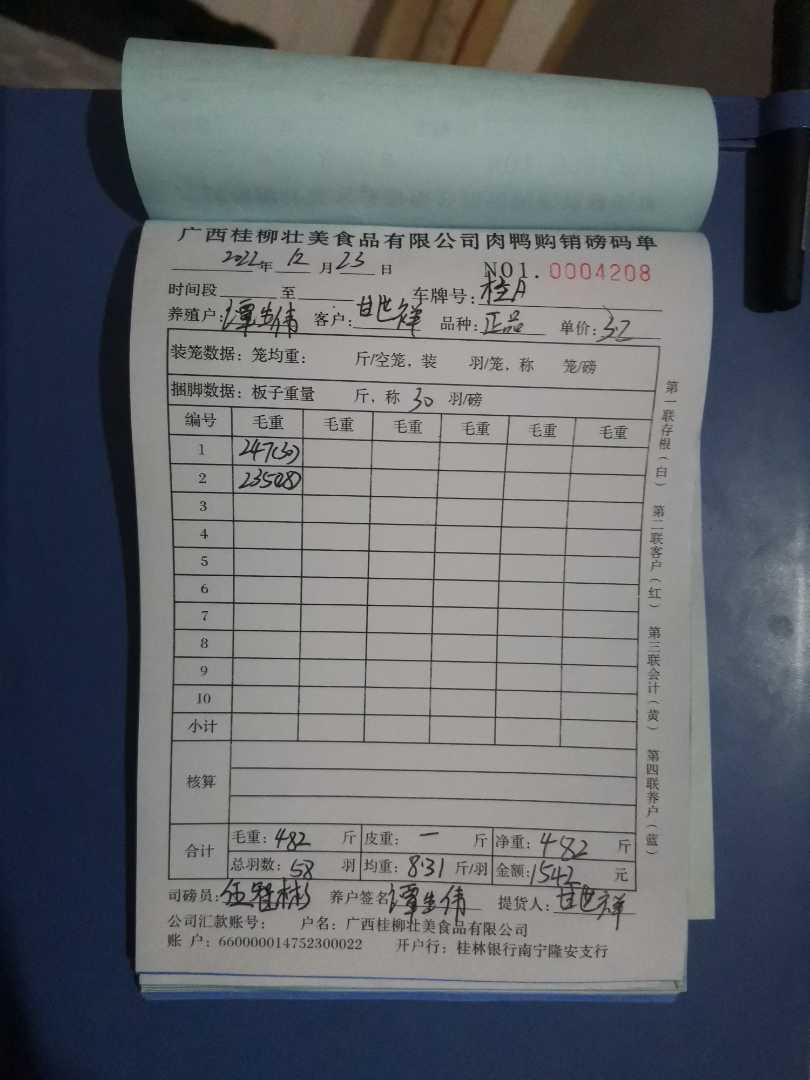 广西桂柳壮美食品有限公司肉鸭购销磅码单
2022年 12 月 23 日 NO1. 0004208
时间段 至 车牌号: 桂A
养殖户: 谭生伟 客户: 甘世祥 品种: 正品 单价: 3.2
装笼数据: 笼均重: 斤/空笼, 装 羽/笼, 称 笼/磅
捆脚数据: 板子重量 斤, 称 30 羽/磅
编号 毛重 毛重 毛重 毛重 毛重 毛重
1 247(30)
2 235(28)
3
4
5
6
7
8
9
10
小计
核算
合计 毛重: 482 斤 皮重: 一 斤 净重: 482 斤
总羽数: 58 羽 均重: 8.31 斤/羽 金额: 1542 元
司磅员: 伍智彬 养户签名: 谭生伟 提货人: 甘世祥
公司汇款账号: 户名: 广西桂柳壮美食品有限公司
账 户: 660000014752300022 开户行: 桂林银行南宁隆安支行
第一联存根(白) 第二联客户(红) 第三联会计(黄) 第四联养户(蓝)